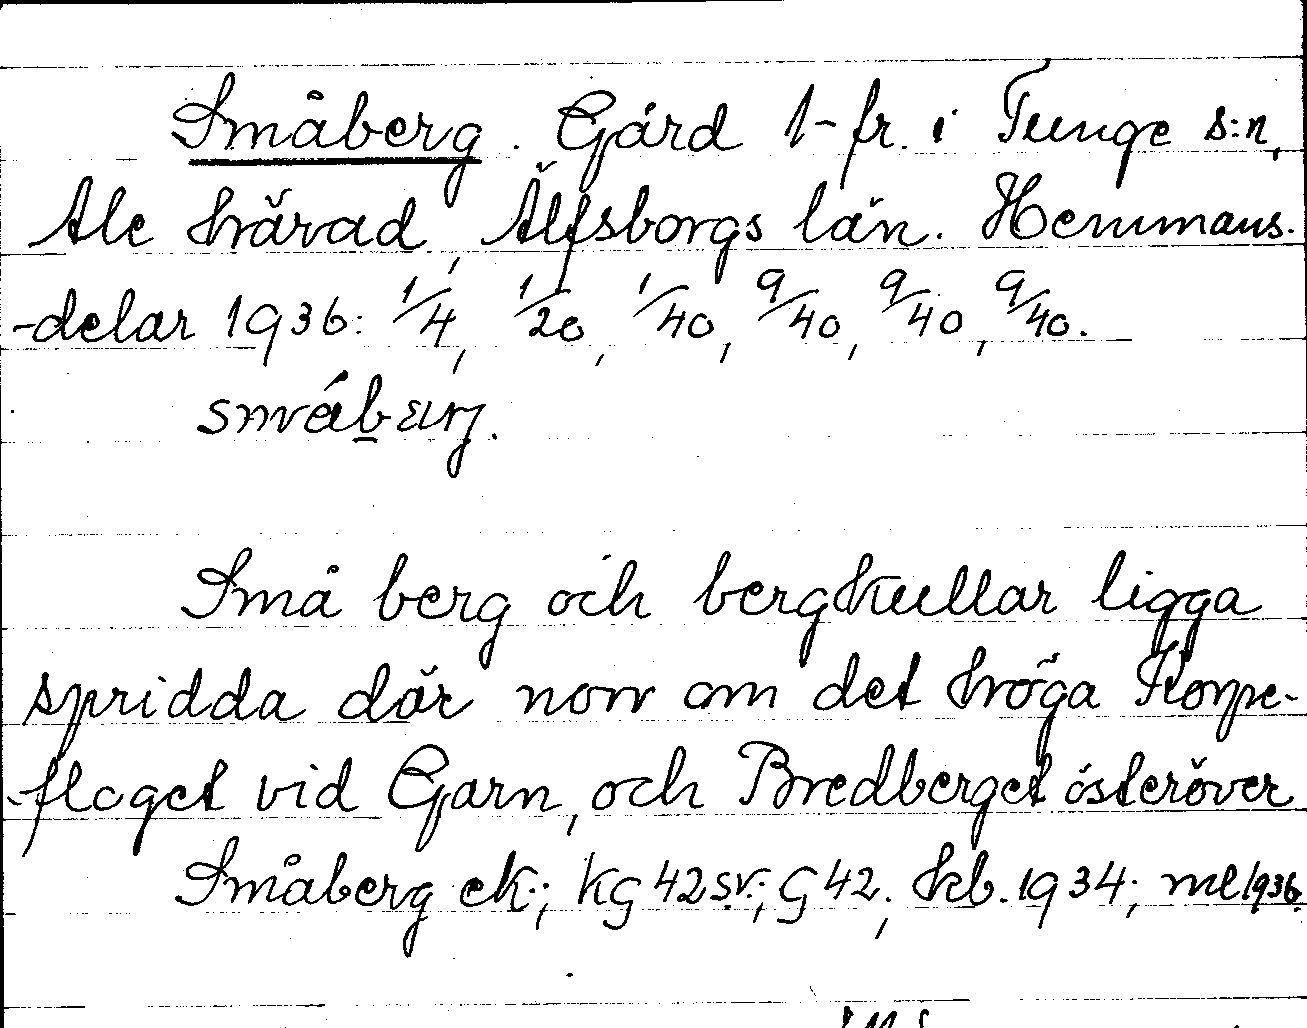 Småberg. Gård 1-fr. i Tunge s:n,
Ale härad, Älfsborgs län. Hemmans-
-delar 1936: 1/4, 1/20, 1/40, 9/40, 9/40, 9/40.
Små berg och bergkullar ligga
spridda där norr om det höga Korpe-
-floget vid Garn, och Bredberget österöver
Småberg ek.; KG 42 sv.; G 42; hb. 1934; ml 1936.